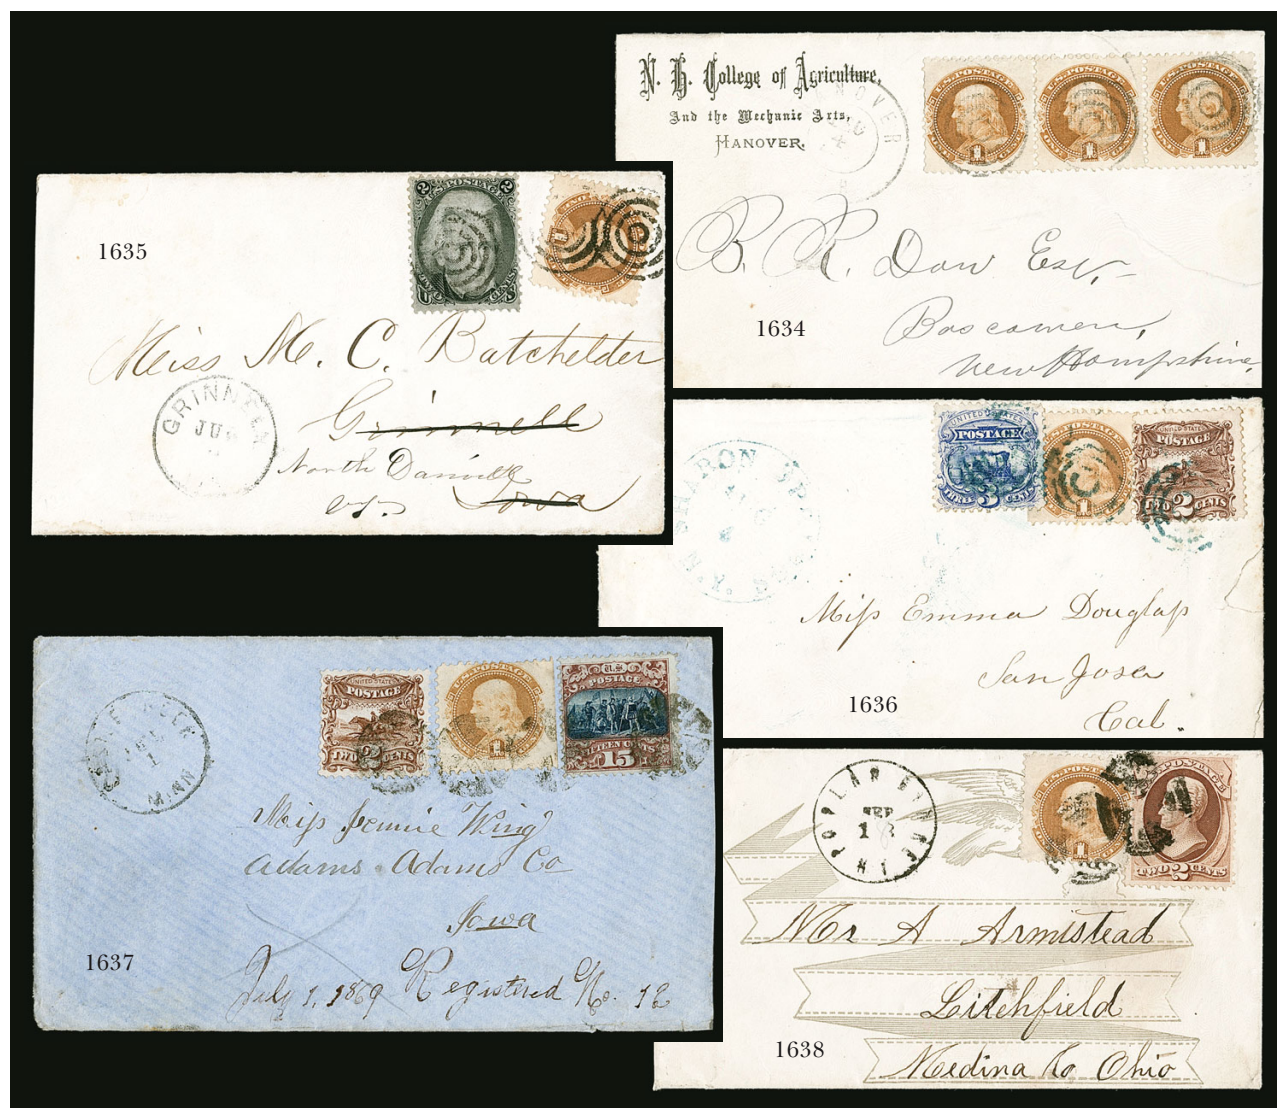 N. H. College of Agriculture,
And the Mechanic Arts,
HANOVER.
HANOVER
U.S. POSTAGE
1
U.S. POSTAGE
1
U.S. POSTAGE
1
B. R. Dow Esq.
Boscawen,
New Hampshire.
1634
1635
2 U.S. POSTAGE 2
TWO CENTS
U S
Miss M. C. Batchelder
Grinnell
North Danville
Vt.
Iowa
GRINNELL
JU
UNITED STATES
POSTAGE
THREE 3 CENTS
U.S. POSTAGE
1
UNITED STATES
POSTAGE
TWO 2 CENTS
SHARON SPRINGS N.Y.
Miss Emma Douglass
San Jose
Cal.
1636
UNITED STATES
POSTAGE
TWO 2 CENTS
U.S. POSTAGE
1
U.S.
POSTAGE
FIFTEEN CENTS
15
1
MINN
Miss Jennie King
Adams Adams Co
Iowa
July 1, 1869 Registered No. 12
1637
POPLAR RIDGE N.Y.
SEP
18
U.S. POSTAGE
1
U.S. POSTAGE
TWO 2 CENTS
Mr A Armistead
Litchfield
Medina Co Ohio
1638